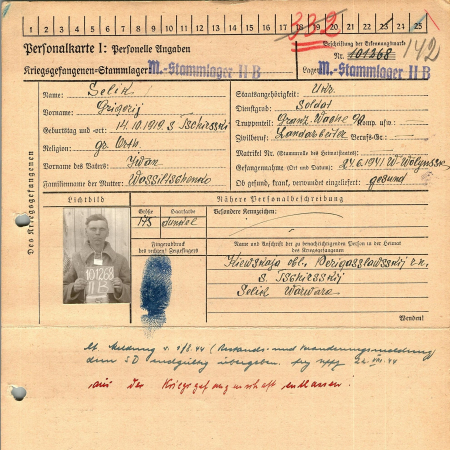 1 2 3 4 5 6 7 8 9 10 11 12 13 14 15 16 17 18 19 20 21 22 23 24 25
332
Personalkarte I: Personelle Angaben
Beschriftung der Erkennungsmarke
Nr. 101268
142
Kriegsgefangenen-Stammlager: M.-Stammlager II B
Lager: M.-Stammlager II B
Des Kriegsgefangenen
Name: Selich
Vorname: Grigorij
Geburtstag und -ort: 14.10.1919 s Tschirsskij
Religion: gr. Orth.
Vorname des Vaters: Iwan
Familienname der Mutter: Wassiltschenko
Staatsangehörigkeit: Ukr.
Dienstgrad: Soldat
Truppenteil: Grenz. Wache 90 Komp. usw.:
Zivilberuf: Landarbeiter Berufs-Gr.:
Matrikel Nr. (Stammrolle des Heimatstaates):
Gefangennahme (Ort und Datum): 24.6.1941 W. Wolynssk.
Ob gesund, krank, verwundet eingeliefert: gesund
Lichtbild
Nähere Personalbeschreibung
Größe
Haarfarbe
Besondere Kennzeichen:
175
dunkel
Fingerabdruck
des rechten! Zeigefingers
101268
II B
Name und Anschrift der zu benachrichtigenden Person in der Heimat
des Kriegsgefangenen
Kiewskaja obl., Perejasslawsskij r.n.
s. Tschirsskij
Selich Warwara
Wenden!
lt. Meldung v. 44 (Bestands- und Veränderungsmeldung)
dem SD endgültig übergeben. 44
aus der Kriegsgefangenschaft entlassen.